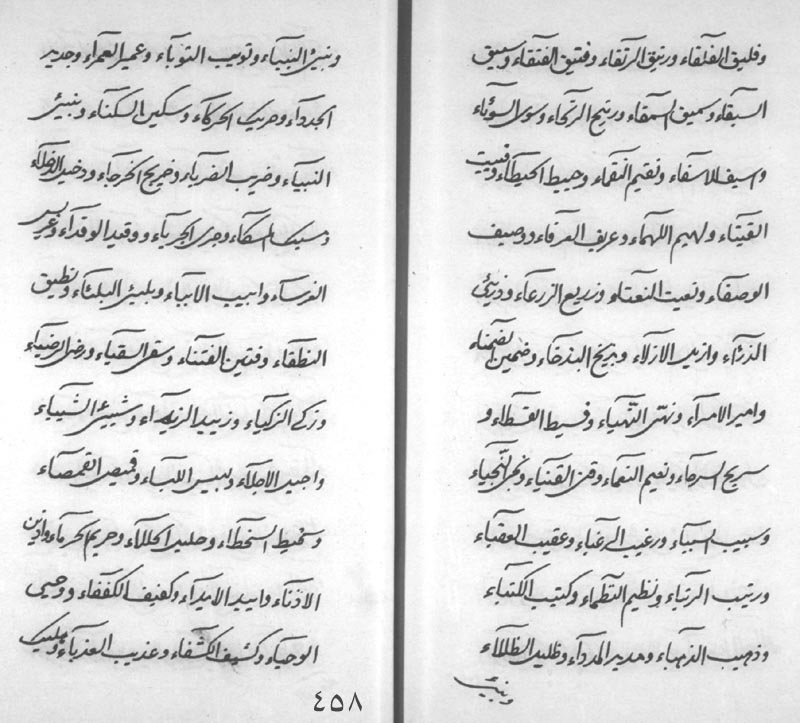 وفليق الفلقاء ورتيق الرتقاء وفتيق الفتقاء وسبيق
السبقاء وسميق السمقاء ورنيح الرنحاء وسوى السوياء
واسيف الاسفاء ونقيم النقماء وحبيط الحبطاء وفتيت
الفتتاء ولهيم اللهماء وعريف العرفاء ووصيف
الوصفاء ونعيت النعتاء وزريع الزرعاء وذريئ
الذرئاء وازيل الازلاء وبزيخ البزخاء وضمين الضمناء
وامير الامراء ونهى النهياء وقسيط القسطاء و
سريج السرجاء ونعيم النعماء وقنى القنياء ونجى النجياء
وسبيب السبباء ورغيب الرغباء وعقيب العقباء
ورتيب الرتباء ونظيم النظماء وكتيب الكتباء
وذهيب الذهباء ومديد المدداء وظليل الظللاء
ونبيئ
ونبيئ النبياء وتويب التوباء وعمير العمراء وجديد
الجدداء وحريك الحركاء وسكين السكناء ونبيئ
النبياء وضريب الضرباء وخريج الخرجاء ودخيل الدخلاء
ومسيك المسكاء وجرى الجرياء ووقيد الوقداء وغريس
الغرساء وابيب الابباء وبليئ البلئاء ونطيق
النطقاء وفتين الفتناء وسقى السقياء ورضى الرضياء
وزكى الزكياء وزييد الزيداء وشييئ الشيياء
واجيل الاجلاء ولبيس اللبساء وقميص القمصاء
وسخيط السخطاء وحليل الحللاء وحريم الحرماء واذين
الاذناء وابيد الابداء وكفيف الكففاء ووحى
الوحياء وكشيف الكشفاء وعذيب العذباء ومليك
٤٥٨